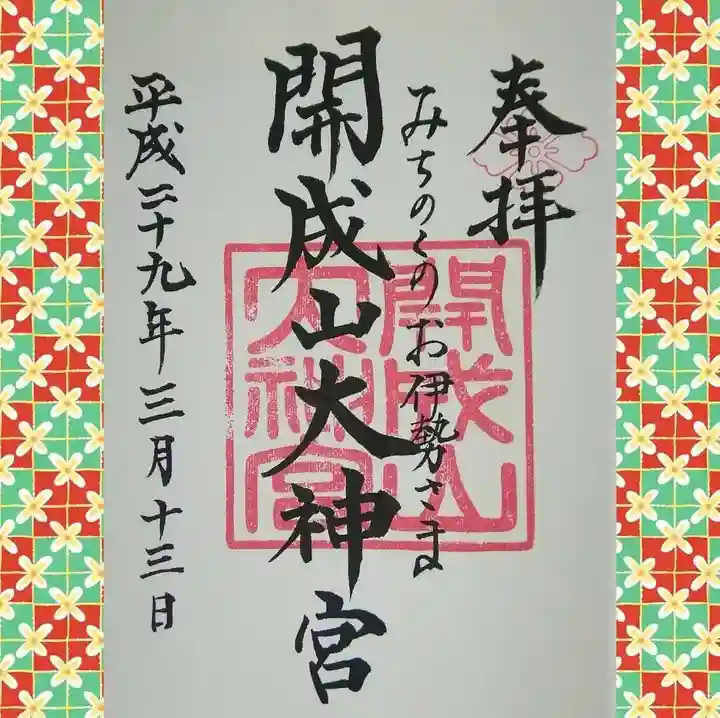 奉拝
みちのくのお伊勢さま
開成山大神宮
平成二十九年三月十三日
開成山
大神宮